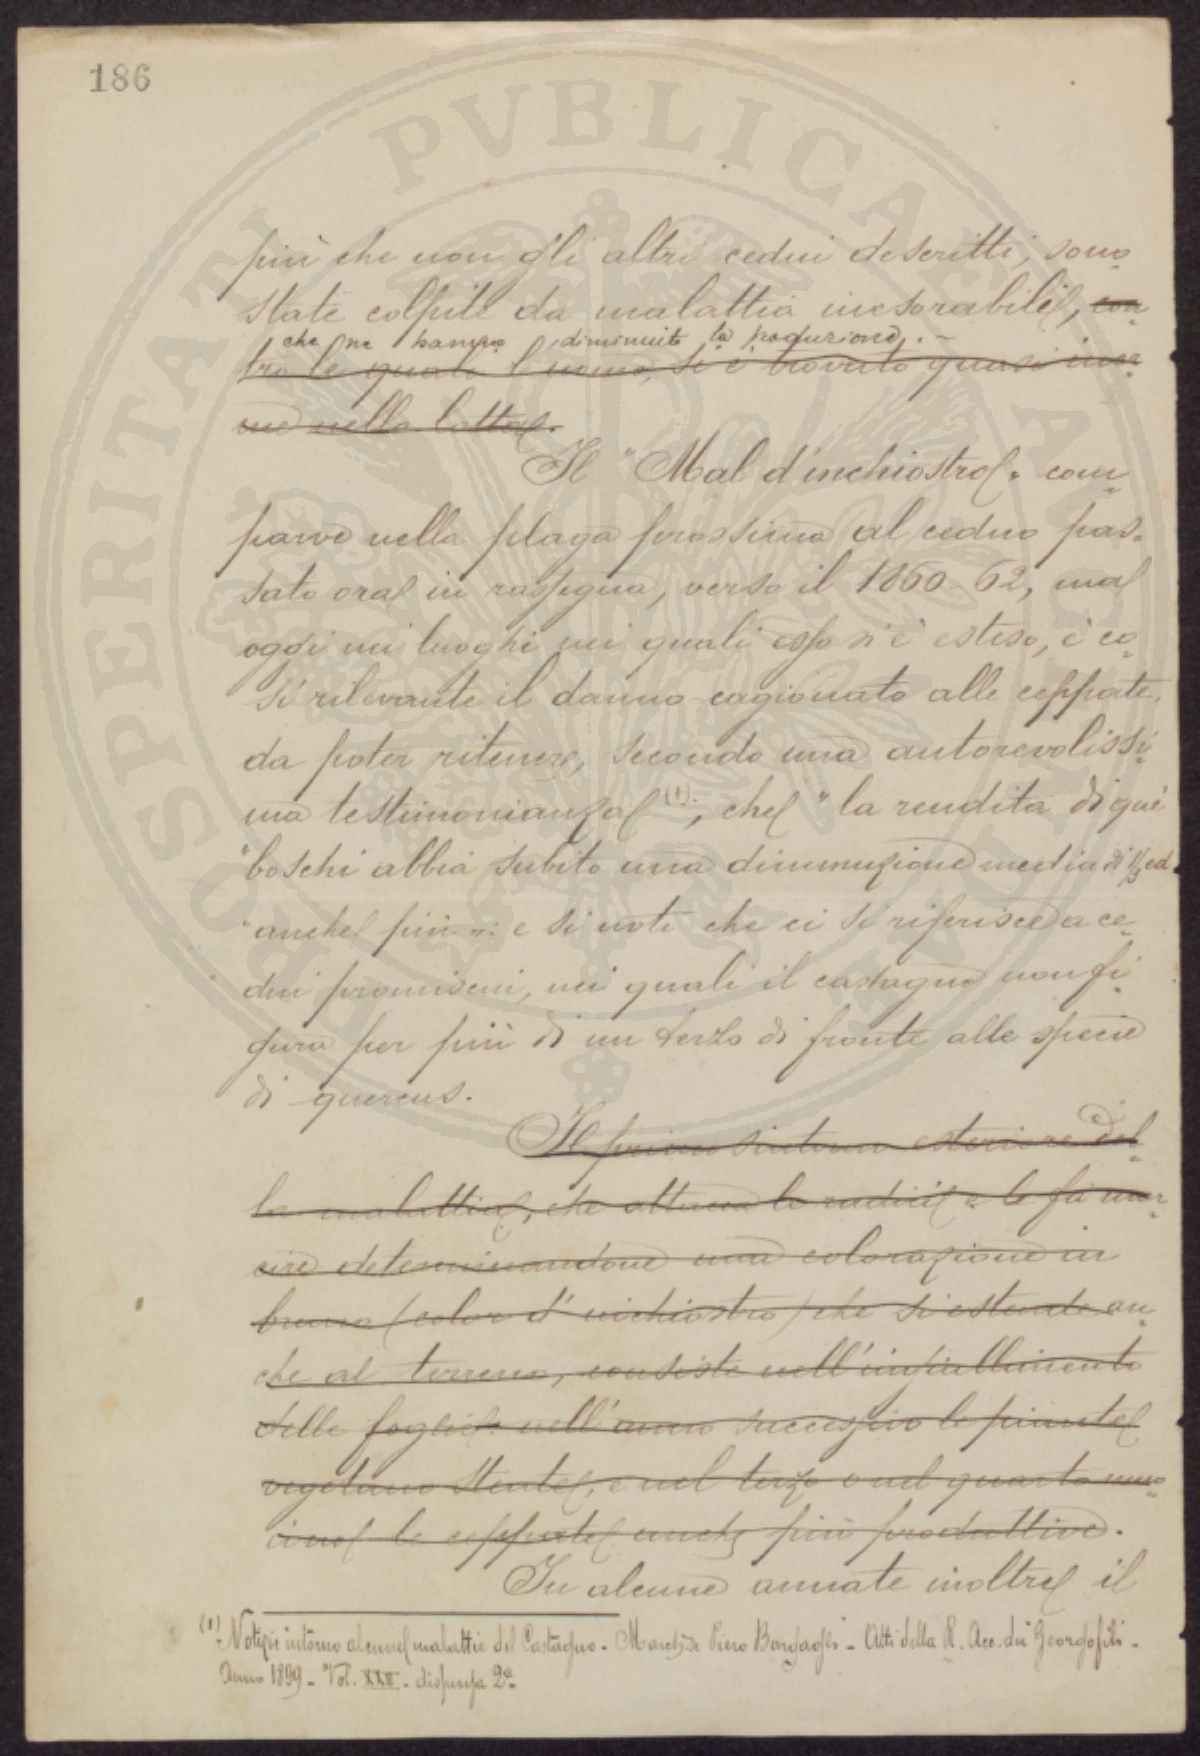 186
più che non gli altri cedui descritti, sono
state colpite da malattia inesorabile, con-
che ne hanno diminuito la produzione. -
tro le quale l'uomo, si è trovato quasi iner-
me nella lotta.
Il "Mal d'inchiostro" com-
parve nella plaga prossima al ceduo pas-
sato ora in rassegna, verso il 1860-62, ma
oggi nei luoghi nei quali esso si è esteso, è co-
sì rilevante il danno cagionato alle ceppate,
da poter ritenere, secondo una autorevolissi-
ma testimonianza (1), che "la rendita di que'
"boschi abbia subito una diminuzione media di 1/3 ed
"anche più"; e si noti che ci si riferisce a ce-
dui promiscui, nei quali il castagno non fi-
gura per più di un terzo di fronte alle specie
di quercus.
Il primo sintomo esteriore del-
la malattia, che attacca le radici e le fa mar-
cire determinandone una colorazione in
bruno (color d'inchiostro) che si estende an-
che al terreno, consiste nell'ingiallimento
delle foglie: nell'anno successivo le piante
vegetano stente, e nel terzo o nel quarto muo-
iono le ceppate anche più produttive.
In alcune annate inoltre il
(1) Notizie intorno alcune malattie del Castagno - March.se Piero Bargagli - Atti della R. Acc. dei Georgofili -
Anno 1899 - Vol. XXII - dispensa 2a
PROSPERITATI PVBLICAE AVGENDAE